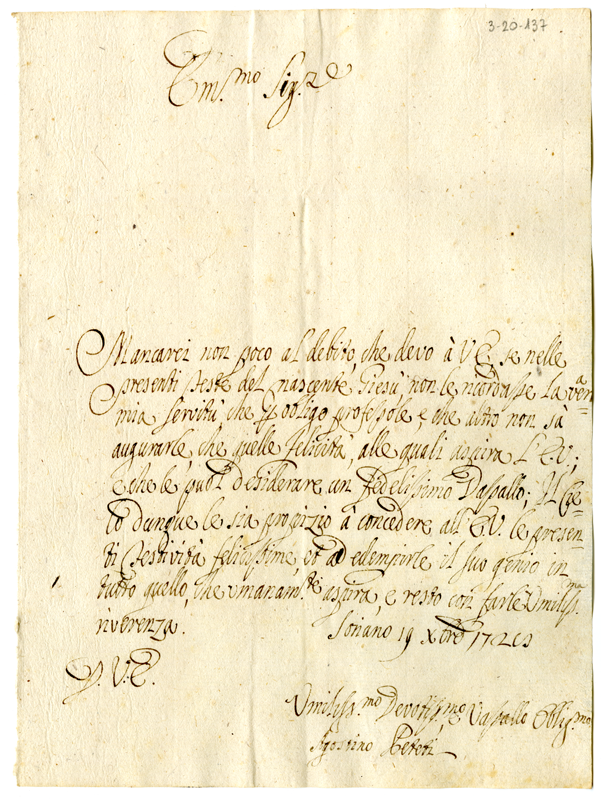 3-20-137
Em.mo Sig.re
Mancarei non poco al debito, che devo à V.E., se nelle
presenti feste del nascente Giesù, non le ricordasse la vera
mia servitù, che p obligo professole, e che altro non sà
augurarle, che quelle felicità, alle quali aspira l'E.V.;
e che le può desiderare un fedelissimo Vassallo; Il Cie=
lo dunque le sia propizio à concedere all'E.V. le presen=
ti Festività felicissime, et ad adempirle il suo genio in
tutto quello, che umanam.te aspira, e resto con farle Umiliss.ma
riverenza.
Soriano 19 Xbre 172
D. V.E.
Umiliss.mo Devotiss.mo Vassallo Oblig.mo
Agostino